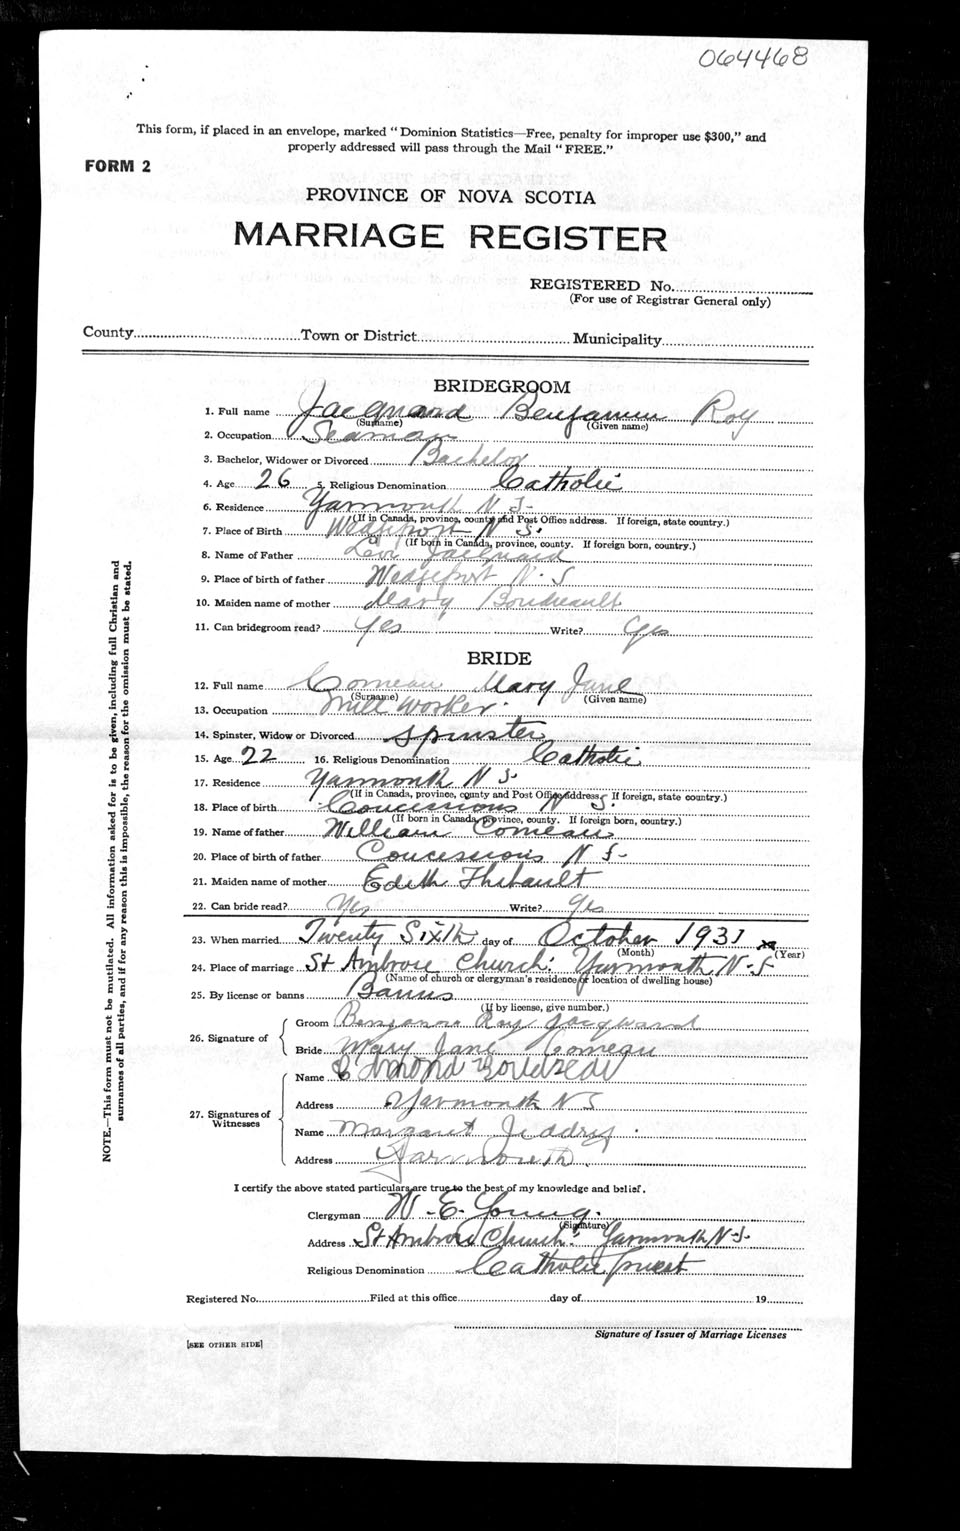 064468
This form, if placed in an envelope, marked "Dominion Statistics—Free, penalty for improper use $300," and
properly addressed will pass through the Mail "FREE."
FORM 2
PROVINCE OF NOVA SCOTIA
MARRIAGE REGISTER
REGISTERED No.
(For use of Registrar General only)
County Town or District Municipality
BRIDEGROOM
1. Full name Jacquard Benjamin Roy
(Surname) (Given name)
2. Occupation Seaman
3. Bachelor, Widower or Divorced Bachelor
4. Age 26 5. Religious Denomination Catholic
6. Residence Yarmouth N S
(If in Canada, province, county and Post Office address. If foreign, state country.)
7. Place of Birth Wedgeport N. S.
(If born in Canada, province, county. If foreign born, country.)
8. Name of Father Levi Jacquard
9. Place of birth of father Wedgeport N. S
10. Maiden name of mother Mary Boudreault
11. Can bridegroom read? Yes Write? Yes
BRIDE
12. Full name Comeau Mary Jane
(Surname) (Given name)
13. Occupation Mill Worker.
14. Spinster, Widow or Divorced Spinster
15. Age 22 16. Religious Denomination Catholic
17. Residence Yarmouth N S.
(If in Canada, province, county and Post Office address. If foreign, state country.)
18. Place of birth Concessions N S.
(If born in Canada, province, county. If foreign born, country.)
19. Name of father William Comeau
20. Place of birth of father Concessions N S-
21. Maiden name of mother Edith Thibault
22. Can bride read? Yes Write? Yes
23. When married Twenty Sixth day of October 1931
(Month) (Year)
24. Place of marriage St Ambrose Church. Yarmouth N. S
(Name of church or clergyman's residence or location of dwelling house)
25. By license or banns Banns
(If by license, give number.)
26. Signature of Groom Benjamin Roy Jacquard
Bride Mary Jane Comeau
27. Signatures of Witnesses Name Edmond Boudreau
Address Yarmouth N S
Name Margaret Jeddry
Address Yarmouth.
I certify the above stated particulars are true to the best of my knowledge and belief.
Clergyman W. E. Young.
(Signature)
Address St Ambrose Church. Yarmouth N. S.
Religious Denomination Catholic Priest
Registered No. Filed at this office day of 19
Signature of Issuer of Marriage Licenses
[SEE OTHER SIDE]
NOTE.—This form must not be mutilated. All information asked for is to be given, including full Christian and
surnames of all parties, and if for any reason this is impossible, the reason for the omission must be stated.